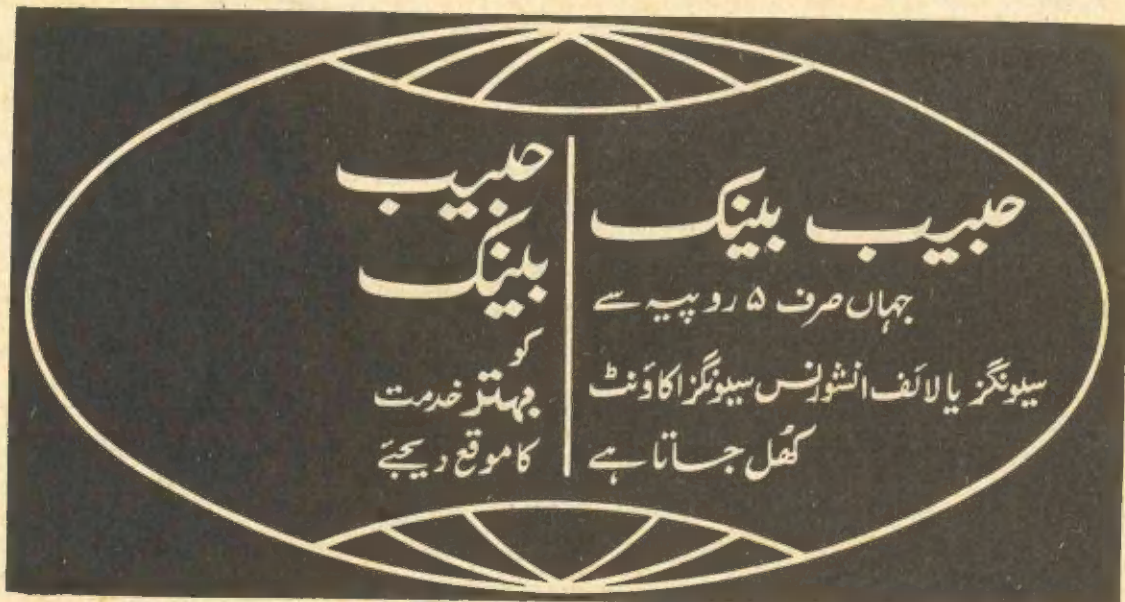 حبیب بینک
جہاں صرف ۵ روپیہ سے
سیونگز یا لائف انشورنس سیونگز اکاؤنٹ
کھُل جاتا ہے
حبیب
بینک
کو
بہتر خدمت
کا موقع دیجئے